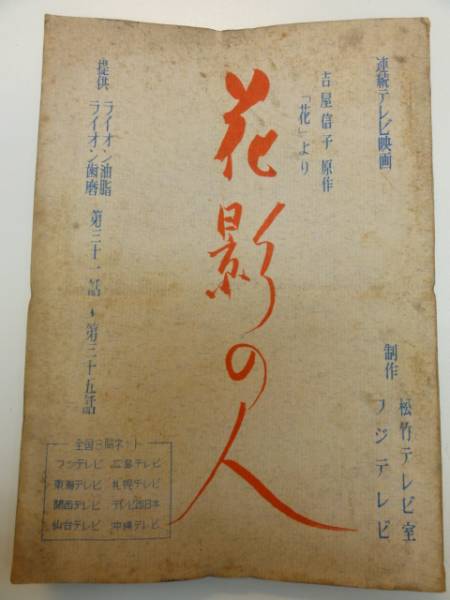 連続テレビ映画
吉屋信子 原作
「花」より
花影の人
制作 松竹テレビ室
フジテレビ
提供 ライオン油脂
ライオン歯磨
第三十一話〜第三十五話
全国8局ネット
フジテレビ 広島テレビ
東海テレビ 札幌テレビ
関西テレビ テレビ西日本
仙台テレビ 沖縄テレビ